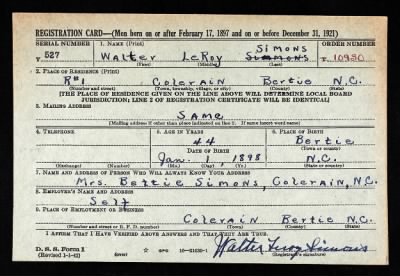 REGISTRATION CARD—(Men born on or after February 17, 1897 and on or before December 31, 1921)
SERIAL NUMBER 1. NAME (Print) ORDER NUMBER
SIMONS
T 527 Walter LeRoy Simmons T 10950
(First) (Middle) (Last)
2. PLACE OF RESIDENCE (Print)
R#1 Colerain Bertie N.C.
(Number and street) (Town, township, village, or city) (County) (State)
[THE PLACE OF RESIDENCE GIVEN ON THE LINE ABOVE WILL DETERMINE LOCAL BOARD
JURISDICTION; LINE 2 OF REGISTRATION CERTIFICATE WILL BE IDENTICAL]
3. MAILING ADDRESS
SAME
[Mailing address if other than place indicated on line 2. If same insert word same]
4. TELEPHONE 5. AGE IN YEARS 6. PLACE OF BIRTH
44 Bertie
DATE OF BIRTH (Town or county)
Jan. 1, 1898 N.C.
(Exchange) (Number) (Mo.) (Day) (Yr.) (State or country)
7. NAME AND ADDRESS OF PERSON WHO WILL ALWAYS KNOW YOUR ADDRESS
Mrs. Bettie Simons, Colerain, N.C.
8. EMPLOYER'S NAME AND ADDRESS
Self
9. PLACE OF EMPLOYMENT OR BUSINESS
Colerain Bertie N.C.
(Number and street or R. F. D. number) (Town) (County) (State)
I AFFIRM THAT I HAVE VERIFIED ABOVE ANSWERS AND THAT THEY ARE TRUE.
D. S. S. Form 1
(Revised 1-1-42) (over) GPO 16—21630-1 Walter Leroy Simons
(Registrant's signature)